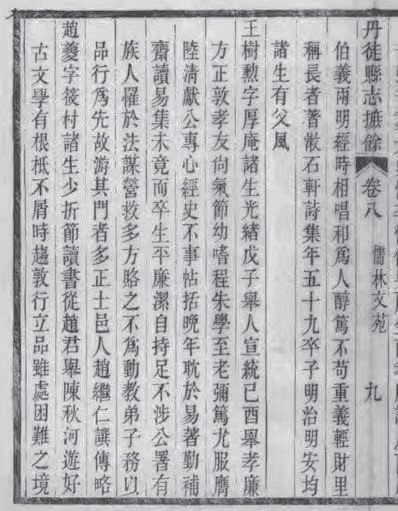 丹徒縣志摭餘 卷八 儒林文苑 九
伯義兩明經時相唱和爲人醇篤不苟重義輕財里
稱長者著嵌石軒詩集年五十九卒子明治明安均
諸生有父風
王樹勲字厚庵諸生光緒戊子舉人宣統己酉舉孝廉
方正敦孝友尙氣節幼嗜程朱學至老彌篤尤服膺
陸清獻公專心經史不事帖括晚年耽於易著勤補
齋讀易集未竟而卒生平廉潔自持足不涉公署有
族人罹於法謀營救多方賂之不爲動教弟子務以
品行爲先故游其門者多正士邑人趙繼仁譔傳略
趙夔字筱村諸生少折節讀書從趙君舉陳秋河遊好
古文學有根柢不屑時趨敦行立品雖處困難之境